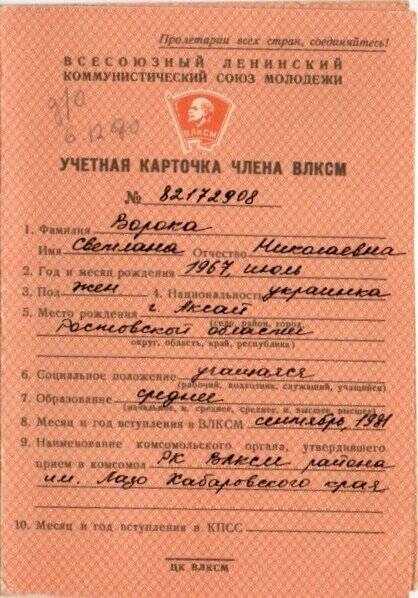 Пролетарии всех стран, соединяйтесь!
ВСЕСОЮЗНЫЙ ЛЕНИНСКИЙ
КОММУНИСТИЧЕСКИЙ СОЮЗ МОЛОДЕЖИ
д/о
6.12.90
ВЛКСМ
УЧЕТНАЯ КАРТОЧКА ЧЛЕНА ВЛКСМ
№ 82172908
1. Фамилия Ворока
Имя Светлана Отчество Николаевна
2. Год и месяц рождения 1967, июль
3. Пол жен 4. Национальность украинка
5. Место рождения г. Аксай
(село, район, город,
Ростовской области
округ, область, край, республика)
6. Социальное положение учащаяся
(рабочий, колхозник, служащий, учащийся)
7. Образование среднее
(начальное, н. среднее, среднее, н. высшее, высшее)
8. Месяц и год вступления в ВЛКСМ сентябрь, 1981
9. Наименование комсомольского органа, утвердившего
прием в комсомол РК ВЛКСМ района
им. Лазо Хабаровского края
10. Месяц и год вступления в КПСС
ЦК ВЛКСМ